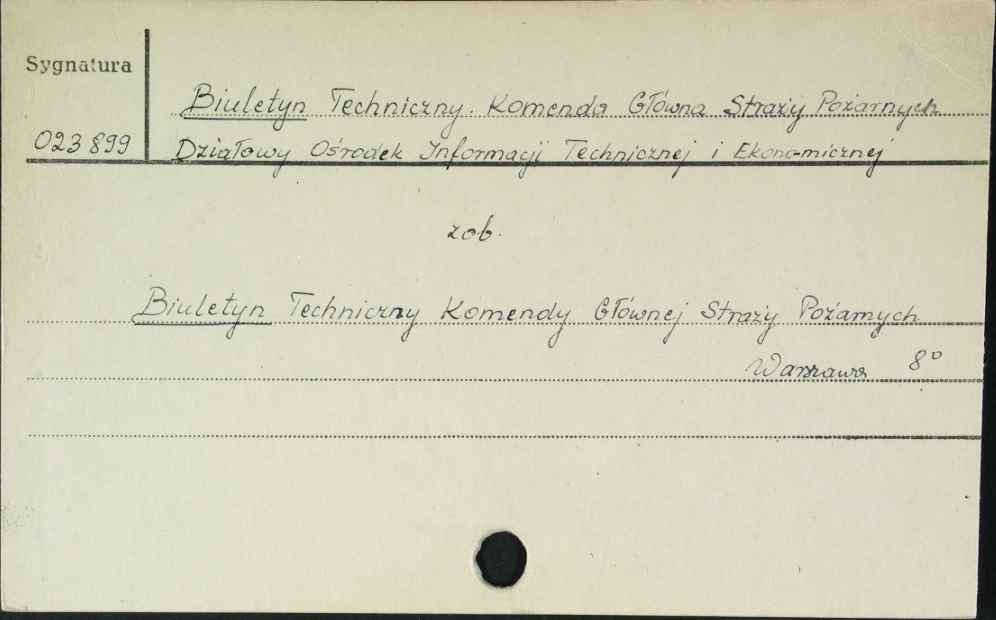 Sygnatura
Biuletyn Techniczny. Komenda Główna Straży Pożarnych
023899 Działowy Ośrodek Informacji Technicznej i Ekonomicznej
zob.
Biuletyn Techniczny Komendy Głównej Straży Pożarnych
Warszawa 8°